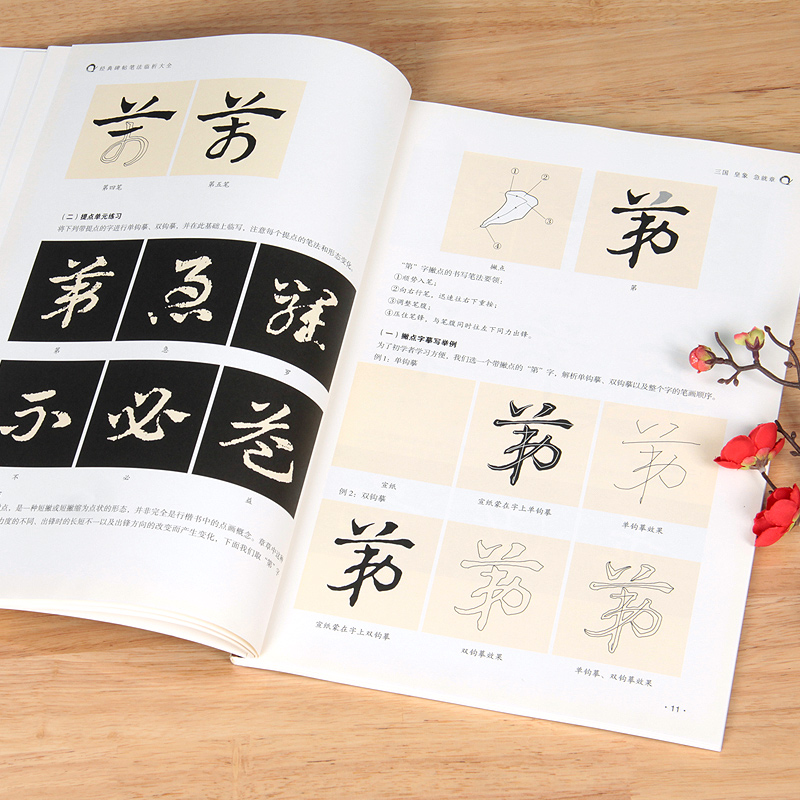 经典碑帖笔法临析大全
第四笔
第五笔
（二）提点单元练习
将下列带提点的字进行单钩摹、双钩摹，并在此基础上临写，注意每个提点的笔法和形态变化。
第
急
罗
不
必
点，是一种短撇或短撇缩为点状的形态，并非完全是行楷书中的点画概念。章草中这种
力度的不同、出锋时的长短不一以及出锋方向的改变而产生变化，下面我们取“第”字
三国 皇象 急就章
①
②
③
④
撇点
第
“第”字撇点的书写笔法要领：
①顺势入笔；
②向右行笔，迅速往右下重按；
③调整笔腹；
④压住笔锋，与笔腹同时往左下同力出锋。
（一）撇点字摹写举例
为了初学者学习方便，我们选一个带撇点的“第”字，解析单钩摹、双钩摹以及整个字的笔画顺序。
例1：单钩摹
宣纸
宣纸蒙在字上单钩摹
单钩摹效果
例2：双钩摹
宣纸蒙在字上双钩摹
双钩摹效果
单钩摹、双钩摹效果
·11·